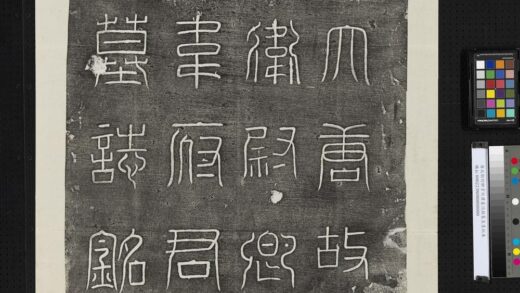 大唐故
衛尉卿
韋府君
墓誌銘